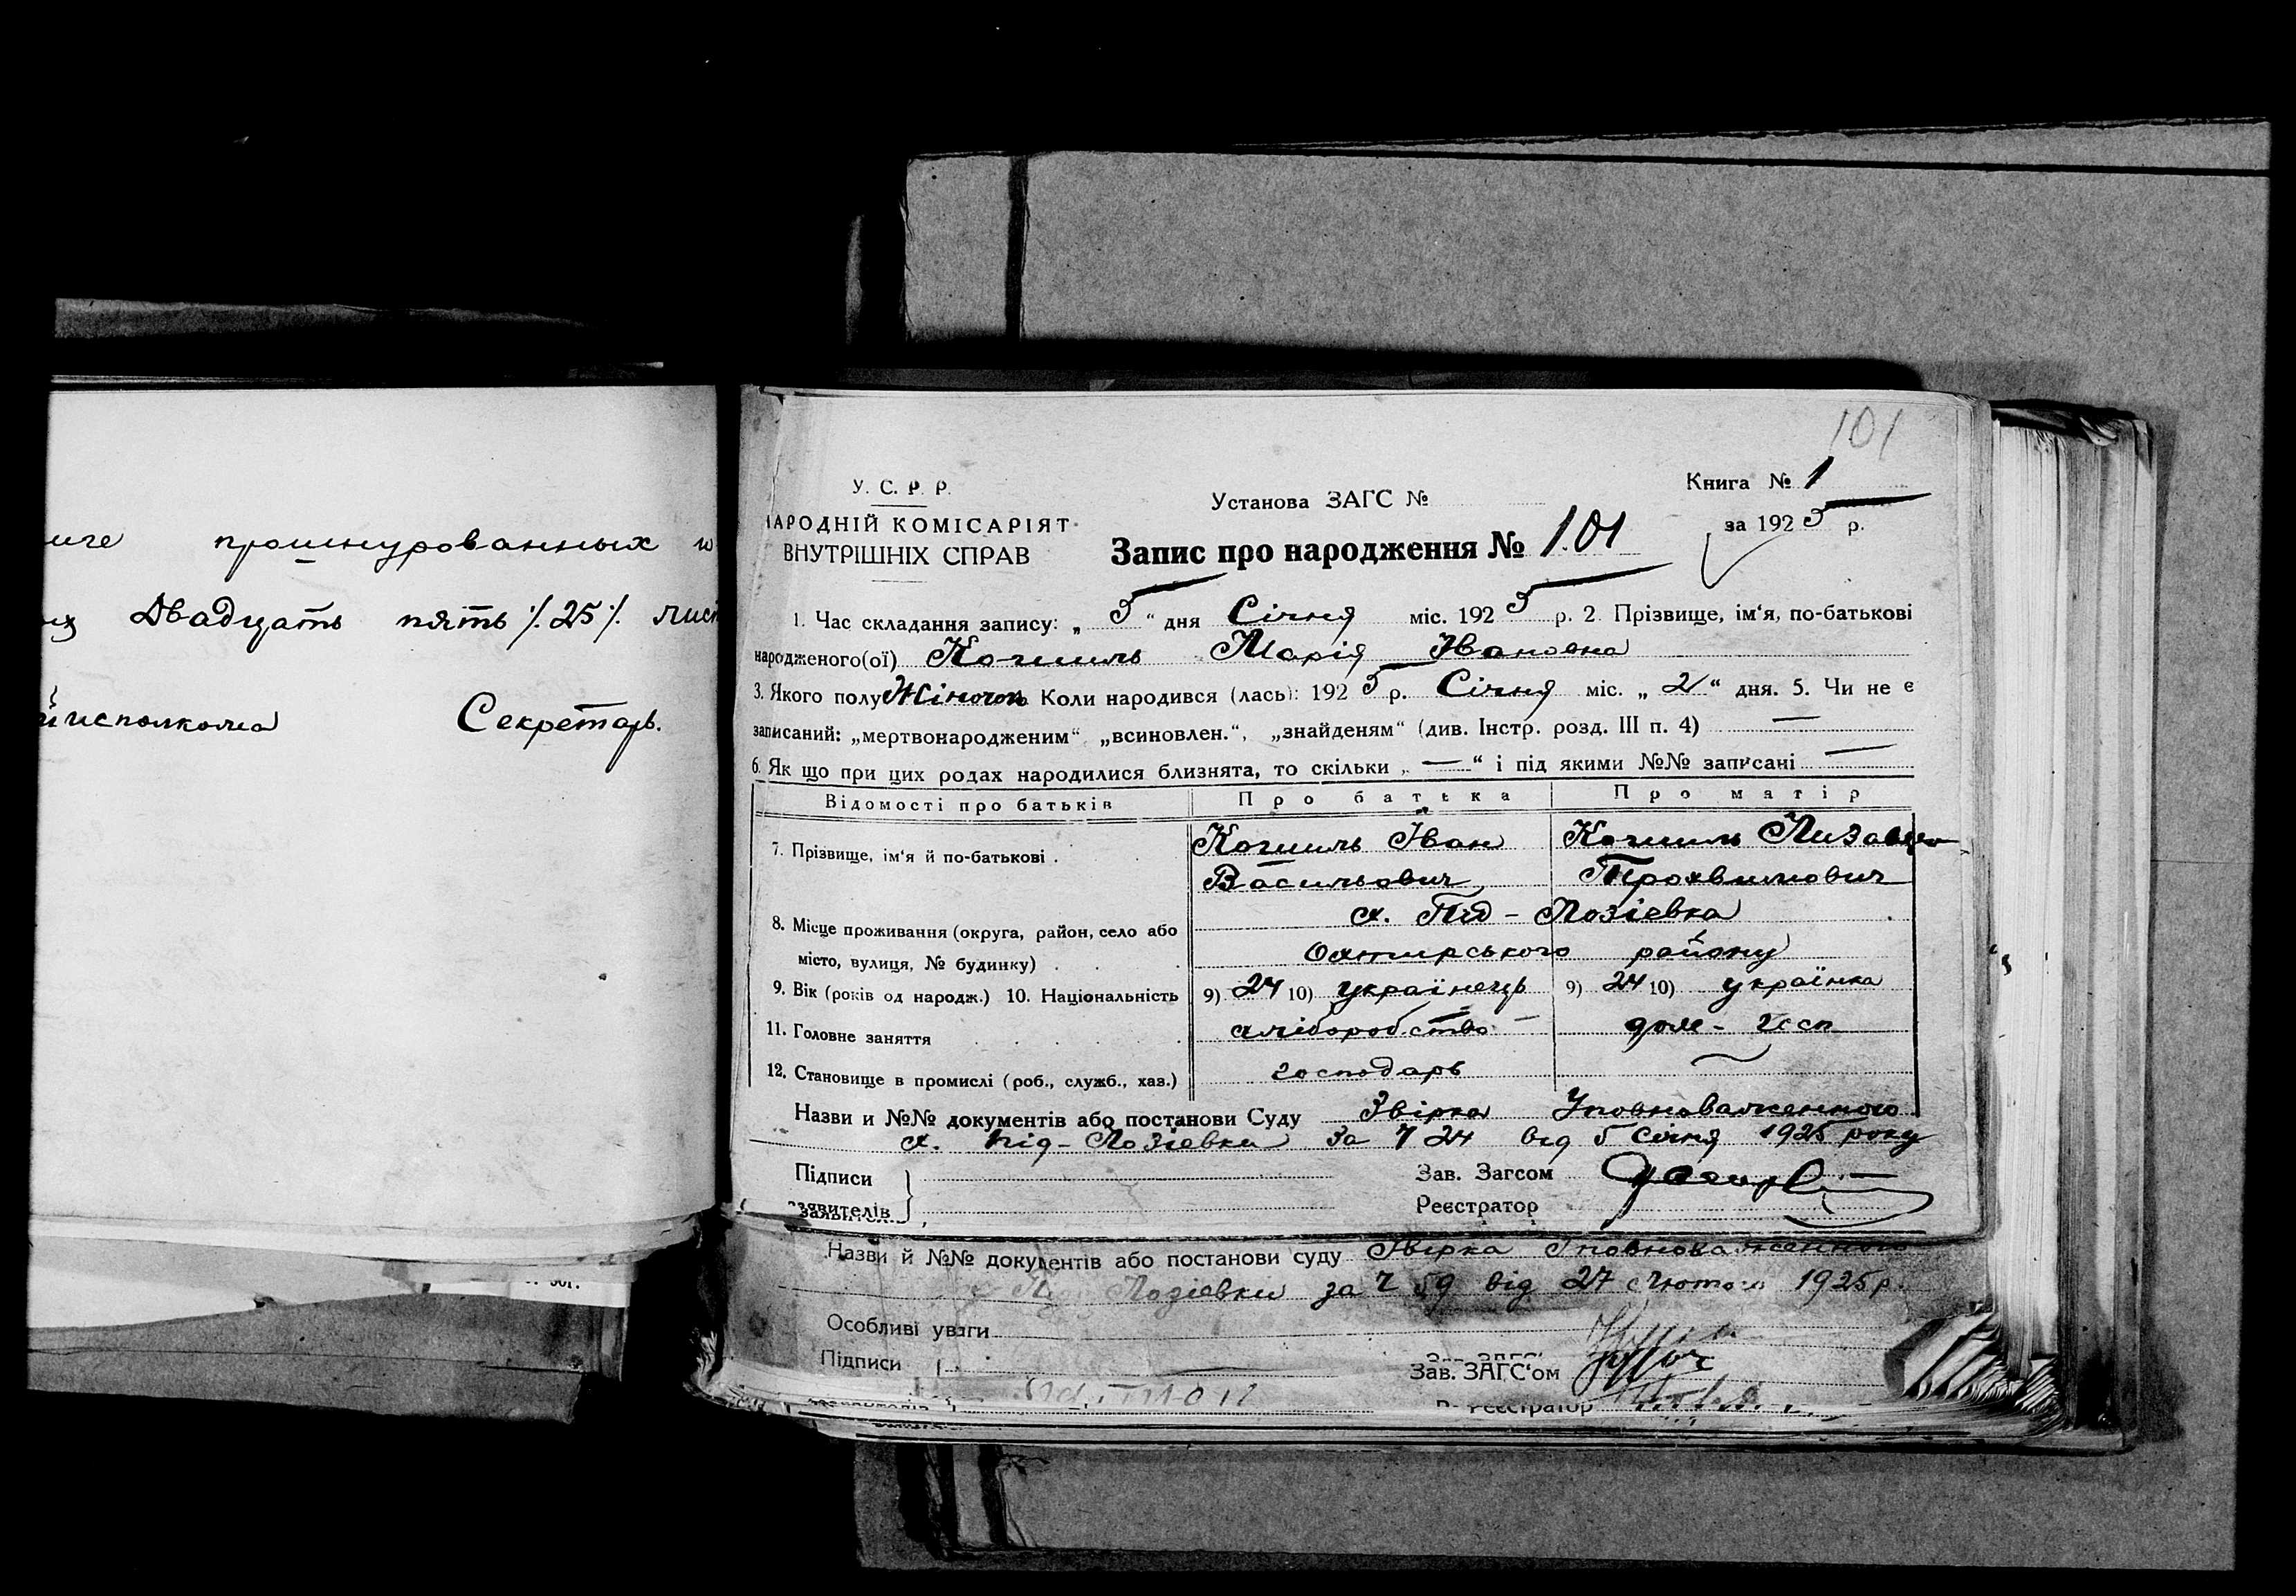 прошнурованных и
Двадцять пять /.25/. лист
йисполкома Секретарь.
101
У. С. Р. Р.
НАРОДНІЙ КОМІСАРІЯТ
ВНУТРІШНІХ СПРАВ
Установа ЗАГС №
Книга № 1
за 1925 р.
Запис про народження № 101
1. Час складання запису: „ 5 “ дня Січня міс. 1925 р. 2. Прізвище, ім‘я, по-батькові
народженого(ої) Марія Івановна
3. Якого полу Жіночого Коли народився (лась): 1925 р. Січня міс. „ 2 “ дня. 5. Чи не є
записаний: „мертвонародженим“ „всиновлен.“, „знайденям“ (див. Інстр. розд. III п. 4) —
6. Як що при цих родах народилися близнята, то скільки „ — “ і під якими №№ записані —
Відомості про батьків Про батька Про матір
7. Прізвище, ім‘я й по-батькові . Іван
Васильович Трохвимович
8. Місце проживання (округа, район, село або
місто, вулиця, № будинку) .
х. Під - Лозієвка
Охтирського району
9. Вік (років од народж.) 10. Національність 9) 24 10) українець 9) 24 10) українка
11. Головне заняття хліборобство дом - госп
12. Становище в промислі (роб., служб., хаз.) господарь
Назви и №№ документів або постанови Суду Звірка Уповноваженного
х. Під - Лозієвки за № 24 від 5 січня 1925 року
Підписи
заявителів
Зав. Загсом
Реєстратор
Назви й №№ документів або постанови суду Звірка Уповноваженного
Лозієвки за № 59 від 27 Лютого 1925 р.
Особливі уваги
Підписи
Зав. ЗАГС‘ом
Реєстратор